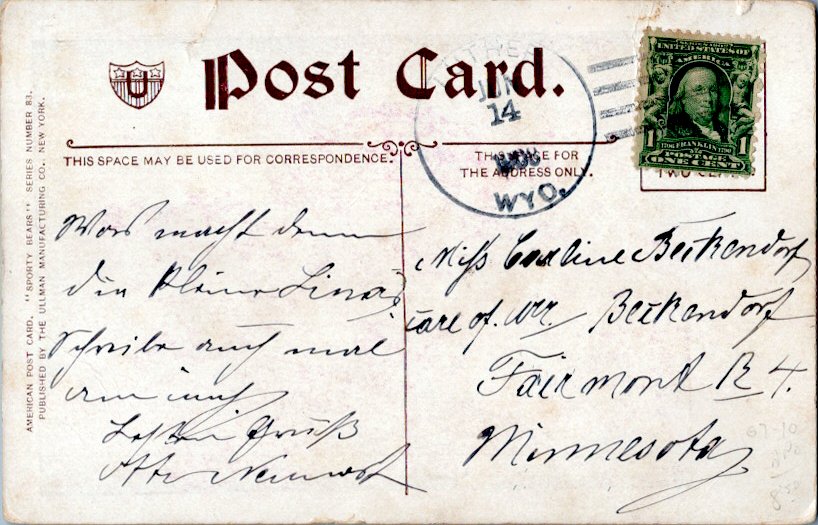 Post Card.
U
JUN
14
WYO.
UNITED STATES OF
AMERICA
1 1706 FRANKLIN 1790 1
POSTAGE
ONE CENT
THIS SPACE MAY BE USED FOR CORRESPONDENCE.
THIS SPACE FOR
THE ADDRESS ONLY.
AMERICAN POST CARD. "SPORTY BEARS" SERIES NUMBER 83.
PUBLISHED BY THE ULLMAN MANUFACTURING CO. NEW YORK.
Was macht denn
die kleine Lina?
Schreibe auch mal
an mich
Gruß
Otto
Miss Beckendorf
care of. Wm. Beckendorf
Fairmont R 4.
Minnesota
07-10